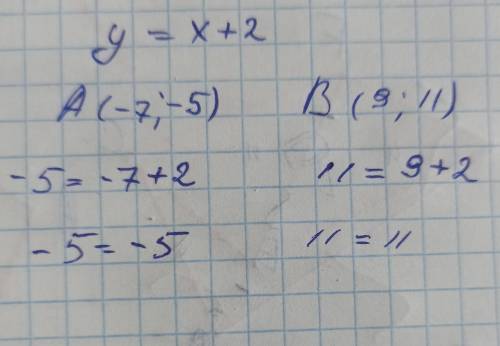 y = x + 2
A (-7; -5) B (9; 11)
-5 = -7 + 2 11 = 9 + 2
-5 = -5 11 = 11